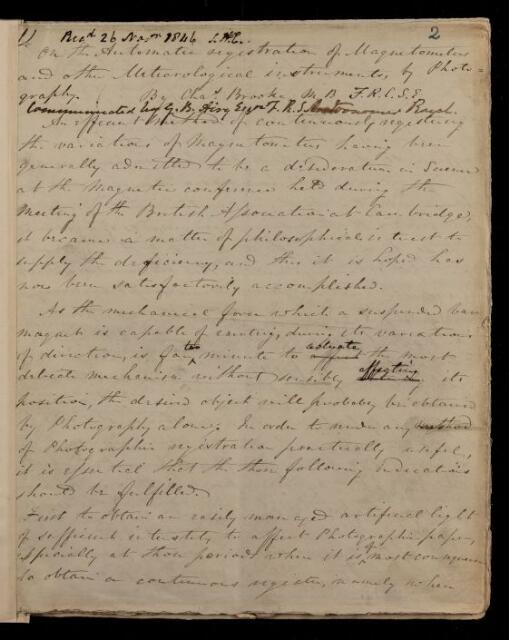 Recd. 26 Novr. 1846 S.H.C. 2
On the Automatic registration of Magnetometers
and other Meteorological instruments, by Photo=
graphy. By Chas. Brooke, M.B. F.R.C.S.E.
Communicated by G. B. Airy Esqre. F.R.S. Astronomer Royal.
An efficient method of continuously registering
the variations of Magnetometers having been
generally admitted to be a desideratum in Science
at the Magnetic conference held during the
Meeting of the British Association at Cambridge,
it became a matter of philosophical interest to
supply the deficiency, and this it is hoped has
now been satisfactorily accomplished.
As the mechanical force which a suspended bar
magnet is capable of exerting, during its variations
of direction, is far too minute to actuate the most
delicate mechanism without sensibly affecting its
position, the desired object will probably be obtained
by Photography alone. In order to render any method
of Photographic registration practically useful,
it is essential that the three following indications
should be fulfilled.
First to obtain an easily managed artificial light
of sufficient intensity to affect Photographic paper,
especially at those periods when it is most
to obtain a continuous register, namely when